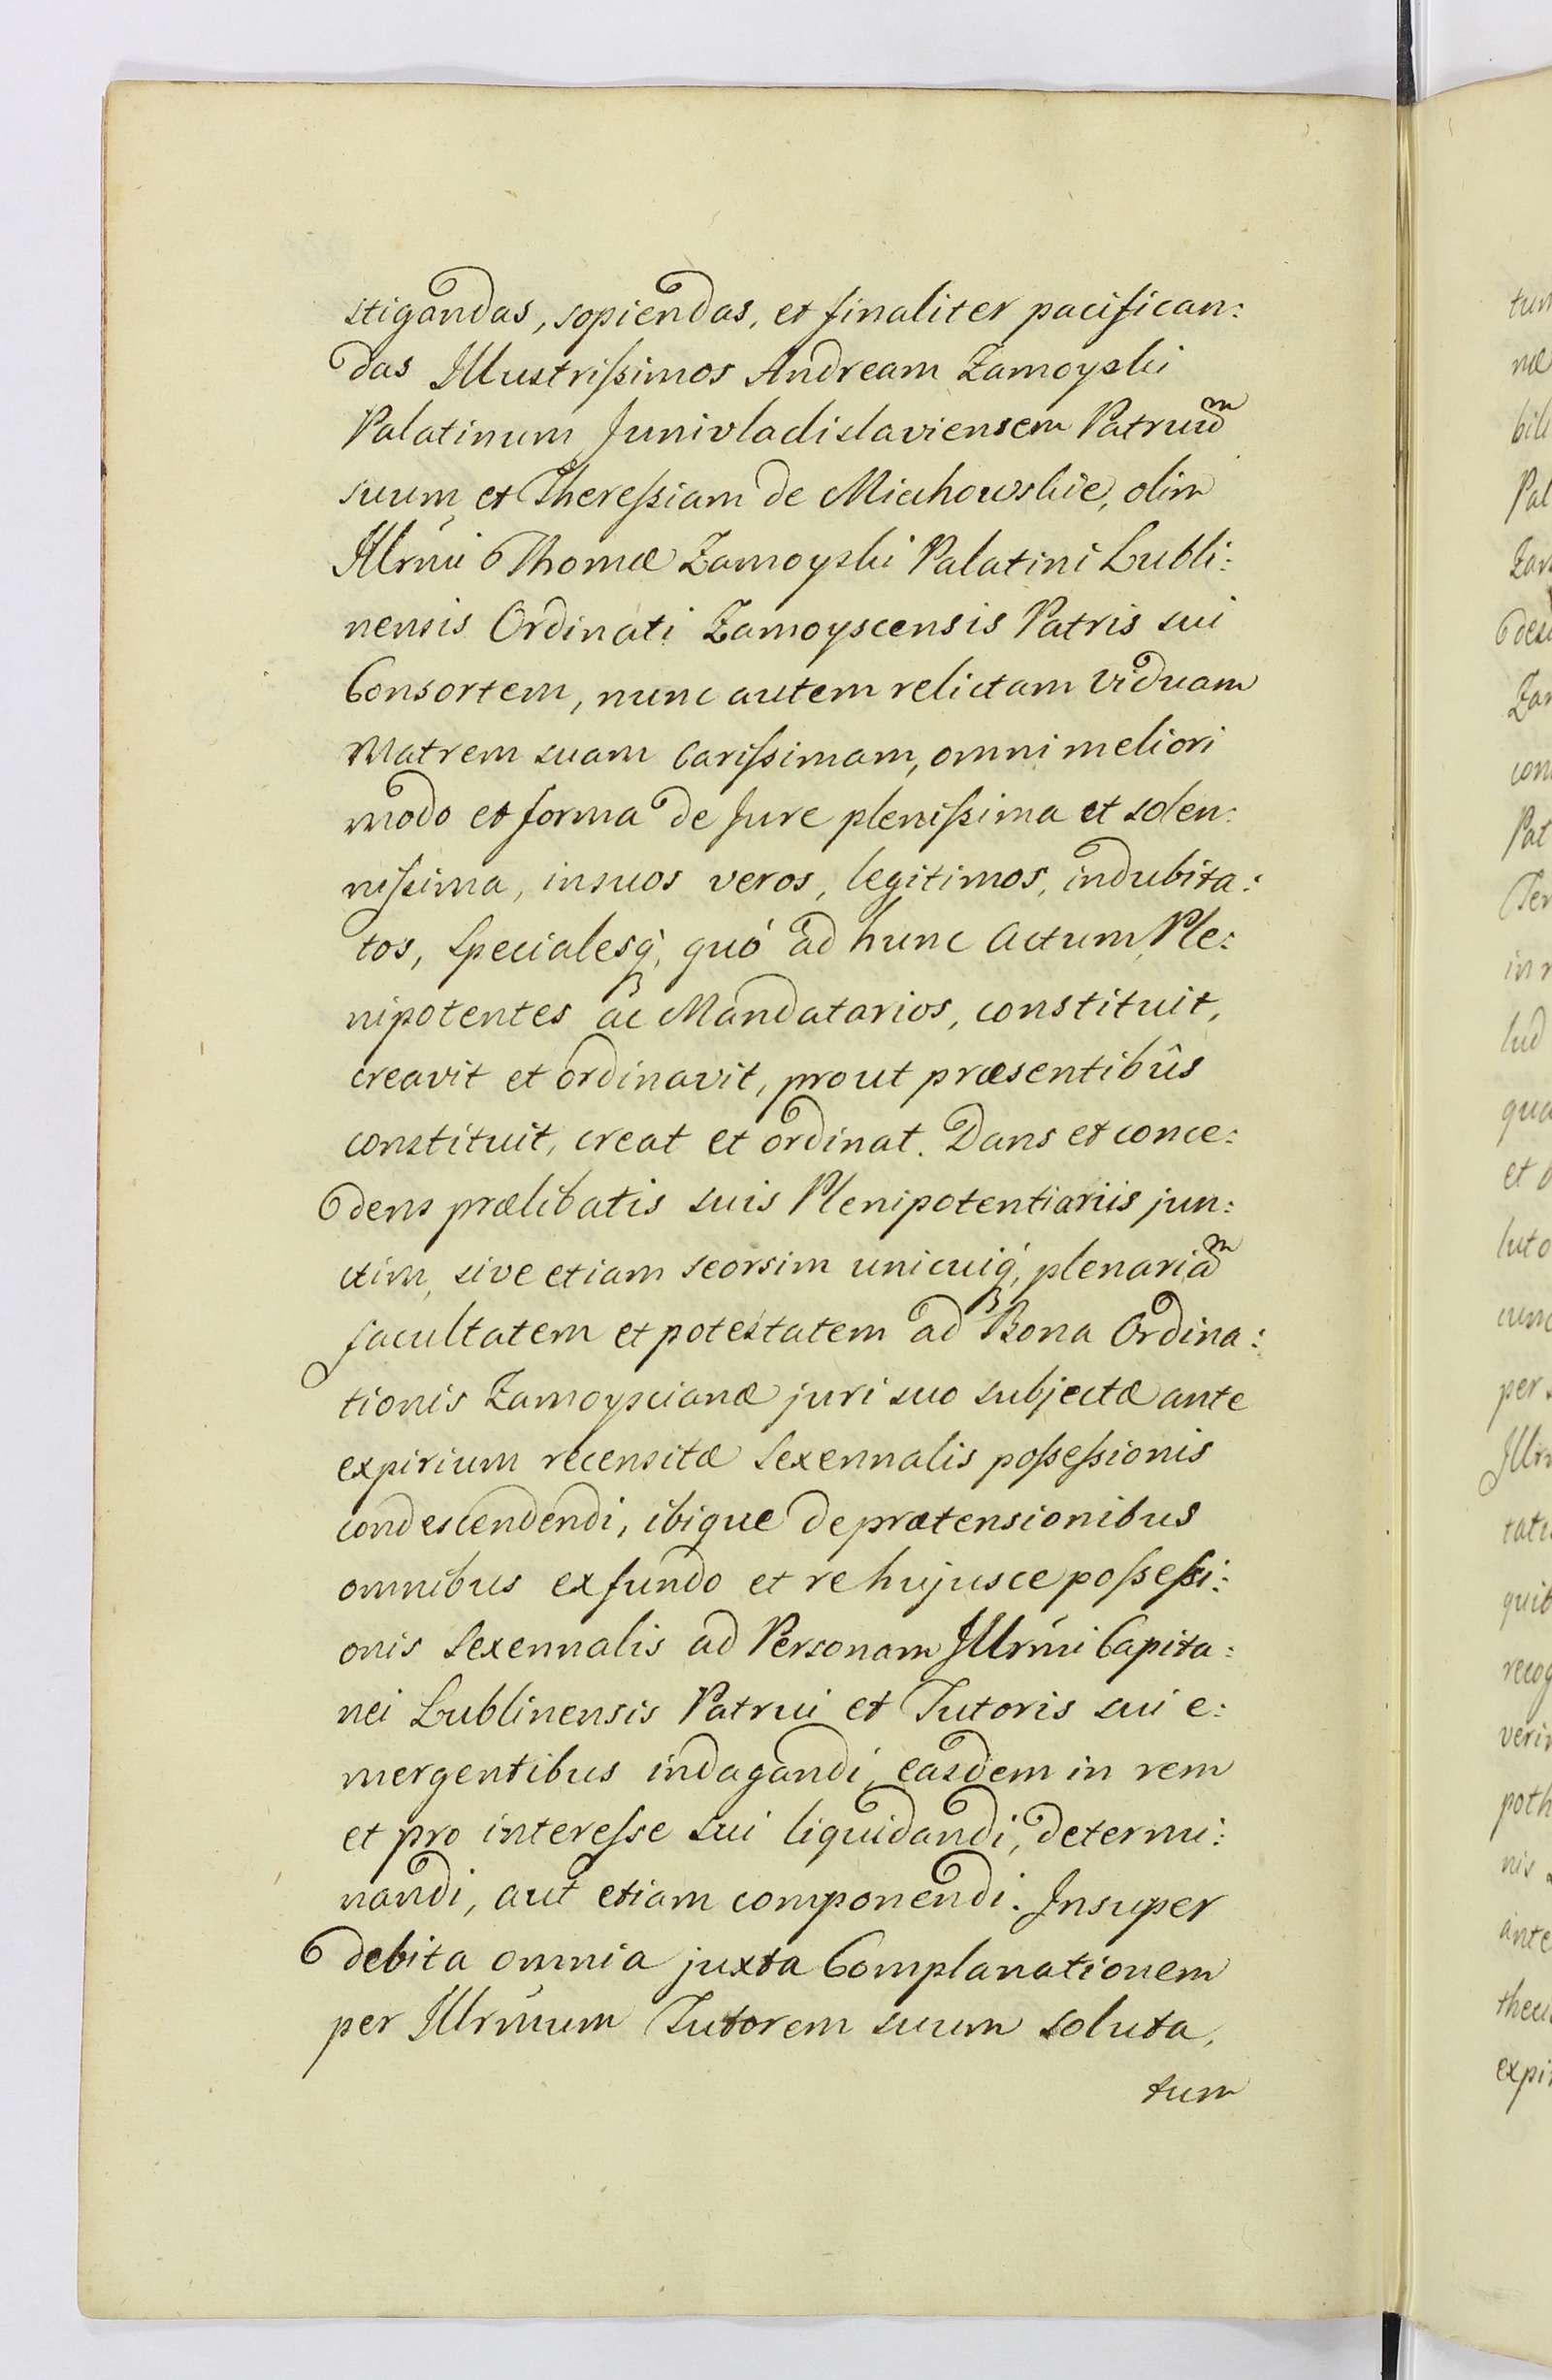 stigandas, sopiendas, et finaliter pacifican:
das Illustrißimos Andream Zamoyski
Palatinum Junivladislaviensem Patruũ
suum et Thereßiam de Michowskie, olim
Illrm̃i Thomæ Zamoyski Palatini Lubli:
nensis Ordinati Zamoyscensis Patris sui
Consortem, nunc autem relictam Viduam
Matrem suam Carißimam, omni meliori
modo et forma de Jure plenißima et solen:
nißima, in suos veros, legitimos, indubita:
tos, Specialesq́, quó ad hunc Actum, Ple:
nipotentes ac Mandatarios, constituit,
creavit et ordinavit, prout præsentibûs
constituit, creat et ordinat. Dans et conce:
dens prælibatis suis Plenipotentiariis jun:
ctim, sive etiam seorsim unicuiq́, plenariã
facultatem et potestatem ad Bona Ordina:
tionis Zamoyscianæ juri suo subjectæ ante
expirium recensitæ Sexennalis poßeßionis
condescendendi, ibique de prætensionibus
omnibus ex fundo et re hujusce poßeßi:
onis Sexennalis ad Personam Illrm̃i Capita:
nei Lublinensis Patrui et Tutoris sui e:
mergentibus indagandi, easdem in rem
et pro intereße sui liquidandi, determi:
nandi, aut etiam componendi. Insuper
debita omnia juxta Complanationem
per Illrm̃um Tutorem suum soluta,
tum